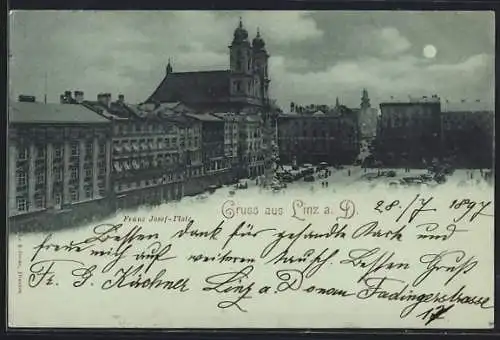 Franz Josef-Platz
Gruss aus Linz a. D.
28/7 1897
Besten Dank für gehabte Karte und
freue mich auf weiteren Tausch. Besten Gruß
Fr. G. Kirchner Linz a. Donau Fadingerstrasse
17